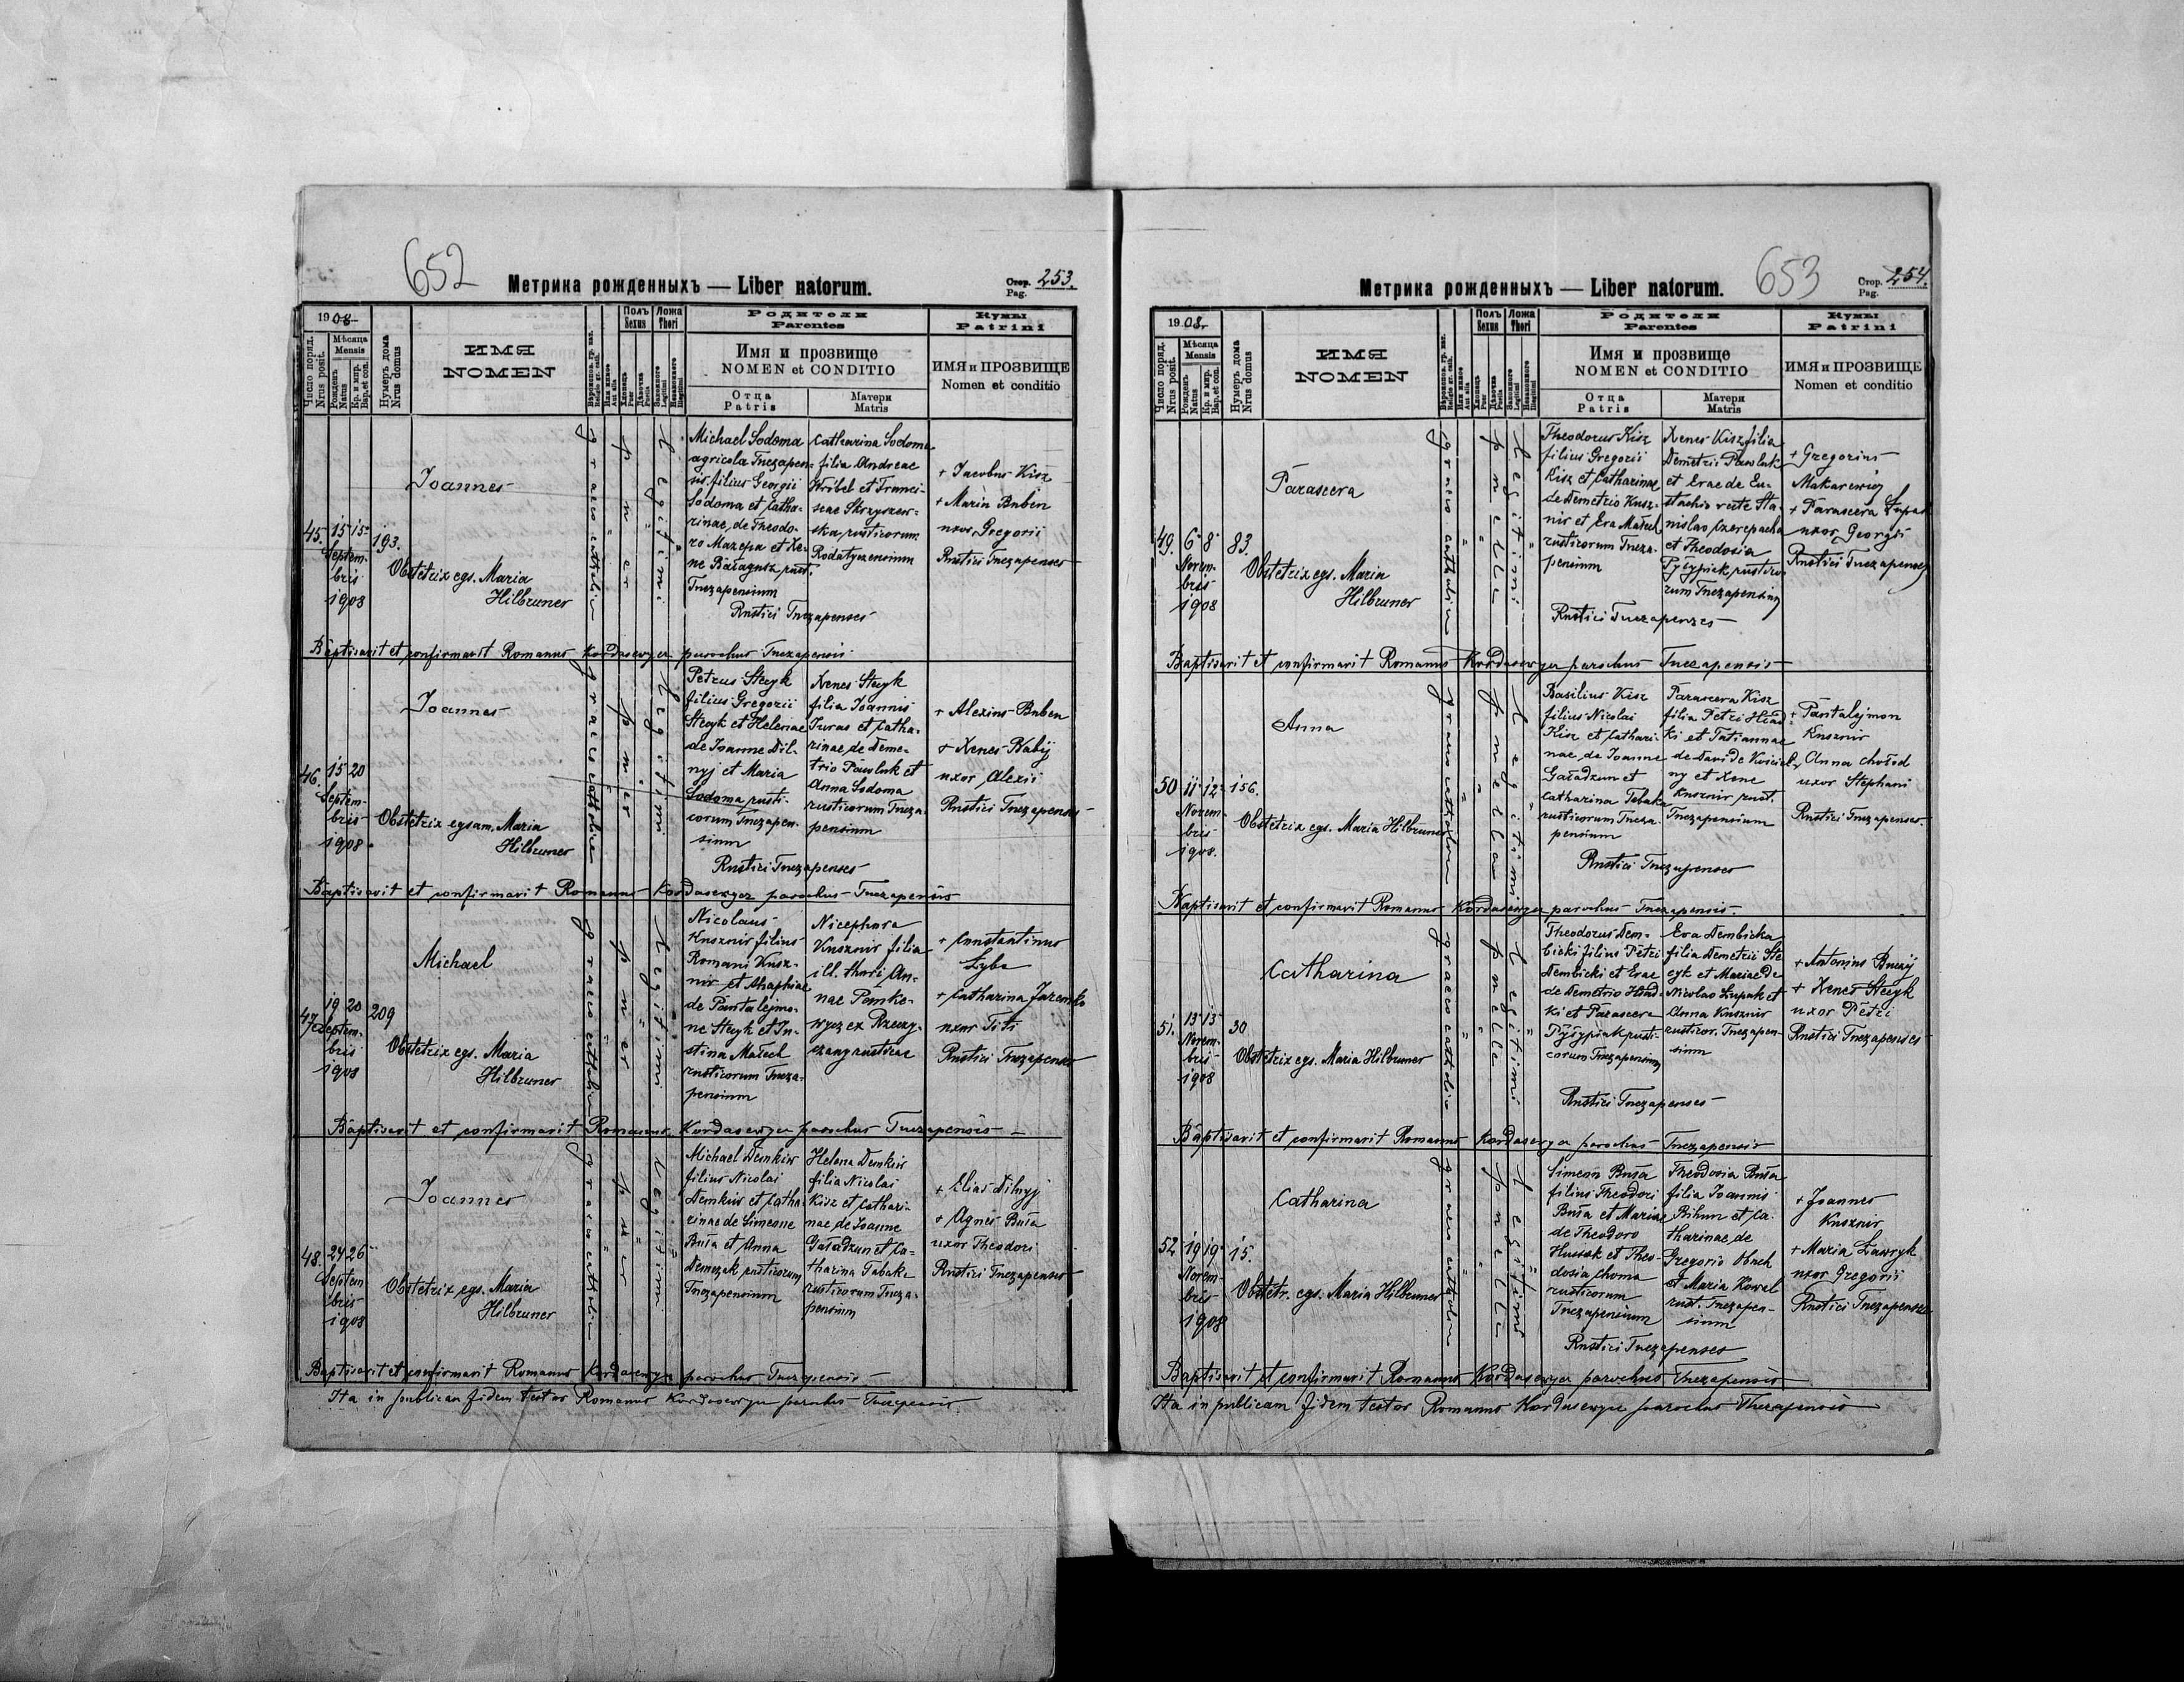 652
Метрика рожденныхъ — Liber natorum.
Стор. Pag. 253.
1908
Число поряд. Nrus posit.
Мѣсяца Mensis
Рожденъ Natus
Кр. и мир. Bap. et con.
Нумеръ дома Nrus domus
ИМЯ
NOMEN
Полъ Sexus
Ложа Thori
Родители
Parentes
Имя и прозвище
NOMEN et CONDITIO
Отца
Patris
Матери
Matris
Кумы
Patrini
ИМЯ и ПРОЗВИЩЕ
Nomen et conditio
45. 15 15 Septembris 1908
193.
Joannes
Obstetrix egs. Maria
Hilbruner
graeco catholica
puer
legitimi
Michael Sodoma
agricola Tnezapen-
sis filius Georgii
Sodoma et Catha-
rinae, de Theodo-
ro Mazepa et Xe-
ne Bałagusz rust.
Tnezapensium
Catharina Sodoma
filia Andreae
Wróbel et Franci-
scae Skrzyszew-
ska, rusticorum
Rodatyczensium
Rustici Tnezapenses
+ Jacobus Kisz
+ Maria Buben
uxor Gregorii
Rustici Tnezapenses
Baptisavit et confirmavit Romanus Kordasewycz parochus Tnezapensis
46. 15 20 Septembris 1908
Joannes
Obstetrix egsam. Maria
Hilbruner
graeco catholica
puer
legitimi
Petrus Stecyk
filius Gregorii
Stecyk et Helenae
de Joanne Dil-
nyj et Maria
Sodoma rusti-
corum Tnezapen-
sium
Xenes Stecyk
filia Joannis
Juras et Catha-
rinae, de Deme-
trio Pawluk et
Anna Sodoma
rusticorum Tneza-
pensium
Rustici Tnezapenses
+ Alexius Buben
+ Xenes Babij
uxor Alexii
Rustici Tnezapenses
Baptisavit et confirmavit Romanus Kordasewycz parochus Tnezapensis
47. 19 20 Septembris 1908
209
Michael
Obstetrix egs. Maria
Hilbruner
graeco catholica
puer
legitimi
Nicolaus
Kusznir filius
Romani Kusz-
nir et Ahaphiae
de Pantalejmo-
ne Stecyk et Ju-
stina Małech
rusticorum Tneza-
pensium
Nicephora
Kusznir filia
ill. thori An-
nae
wycz ex Rzeczy-
czany rusticae
+ Constantinus
Zyba
+ Catharina Jaremko
uxor Titi
Rustici Tnezapenses
Baptisavit et confirmavit Romanus Kordasewycz parochus Tnezapensis
48. 24 26 Septembris 1908
Joannes
Obstetrix egs. Maria
Hilbruner
graeco catholica
puer
legitimi
Michael Demkiw
filius Nicolai
Demkiw et Catha-
rinae de Simeone
Buła et Anna
Demczak rusticorum
Tnezapensium
Helena Demkiw
filia Nicolai
Kisz et Cathari-
nae, de Joanne
Gaładzun et Ca-
tharina Tabaka
rusticorum Tneza-
pensium
+ Elias Dilnyj
+ Agnes Buła
uxor Theodori
Rustici Tnezapenses
Baptisavit et confirmavit Romanus Kordasewycz parochus Tnezapensis
Ita in publicam fidem testor Romanus Kordasewycz parochus Tnezapensis
653
Метрика рожденныхъ — Liber natorum.
Стор. Pag. 254.
1908.
Число поряд. Nrus posit.
Мѣсяца Mensis
Рожденъ Natus
Кр. и мир. Bap. et con.
Нумеръ дома Nrus domus
ИМЯ
NOMEN
Полъ Sexus
Ложа Thori
Родители
Parentes
Имя и прозвище
NOMEN et CONDITIO
Отца
Patris
Матери
Matris
Кумы
Patrini
ИМЯ и ПРОЗВИЩЕ
Nomen et conditio
49. 6 8 Novembris 1908
83.
Parasceva
Obstetrix egs. Maria
Hilbruner
graeco catholica
puella
legitimi
Theodorus Kisz
filius Gregorii
Kisz et Catharinae
de Demetrio Kusz-
nir et Eva Małech
rusticorum Tneza-
pensium
Xenes Kisz filia
Demetrii Pawluk
et Evae de Eu-
stachio recte Sta-
nislao Czerepacha
et Theodosia
rustico-
rum Tnezapensium
Rustici Tnezapenses
+ Gregorius
Makarewicz
+ Parasceva Łupak
uxor Georgii
Rustici Tnezapenses
Baptisavit et confirmavit Romanus Kordasewycz parochus Tnezapensis
50 11 12 Novembris 1908.
156.
Anna
Obstetrix egs. Maria Hilbruner
graeco catholica
puella
legitimi
Basilius Kisz
filius Nicolai
Kisz et Cathari-
nae, de Joanne
Gaładzun et
Catharina Tabaka
rusticorum Tneza-
pensium
Parasceva Kisz
filia Petri Hład-
ki et Tatiannae
de Davide Kościel-
ny et Xene
Kusznir rust.
Tnezapensium
Rustici Tnezapenses
+ Pantalejmon
Kusznir
Anna Chołod
uxor Stephani
Rustici Tnezapenses
Baptisavit et confirmavit Romanus Kordasewycz parochus Tnezapensis.
51. 13 13 Novembris 1908
30
Catharina
Obstetrix egs. Maria Hilbruner
graeco catholica
puella
legitimi
Theodorus Dem-
bicki filius Petri
Dembicki et Evae
de Demetrio Hład-
ki et Parasceva
rusti-
corum Tnezapensium
Eva Dembicka
filia Demetrii Ste-
cyk et Mariae de
Nicolao Łupak et
Anna Kusznir
rusticor. Tnezapen-
sium
Rustici Tnezapenses
+ Antonius
+ Xenes Stecyk
uxor Petri
Rustici Tnezapenses
Baptisavit et confirmavit Romanus Kordasewycz parochus Tnezapensis
52 19 19 Novembris 1908
15.
Catharina
Obstetr. egs. Maria Hilbruner
graeco catholica
puella
legitimi
Simeon Buła
filius Theodori
Buła et Mariae
de Theodoro
Hussak et Theo-
dosia Choma
rusticorum
Tnezapensium
Theodosia Buła
filia Joannis
Bihun et Ca-
tharinae de
Gregorio Obuch
et Maria Kowal
rust. Tnezapen-
sium
Rustici Tnezapenses
+ Joannes
Kusznir
+ Maria Ławryk
uxor Gregorii
Rustici Tnezapenses
Baptisavit et confirmavit Romanus Kordasewycz parochus Tnezapensis
Ita in publicam fidem testor Romanus Kordasewycz parochus Tnezapensis